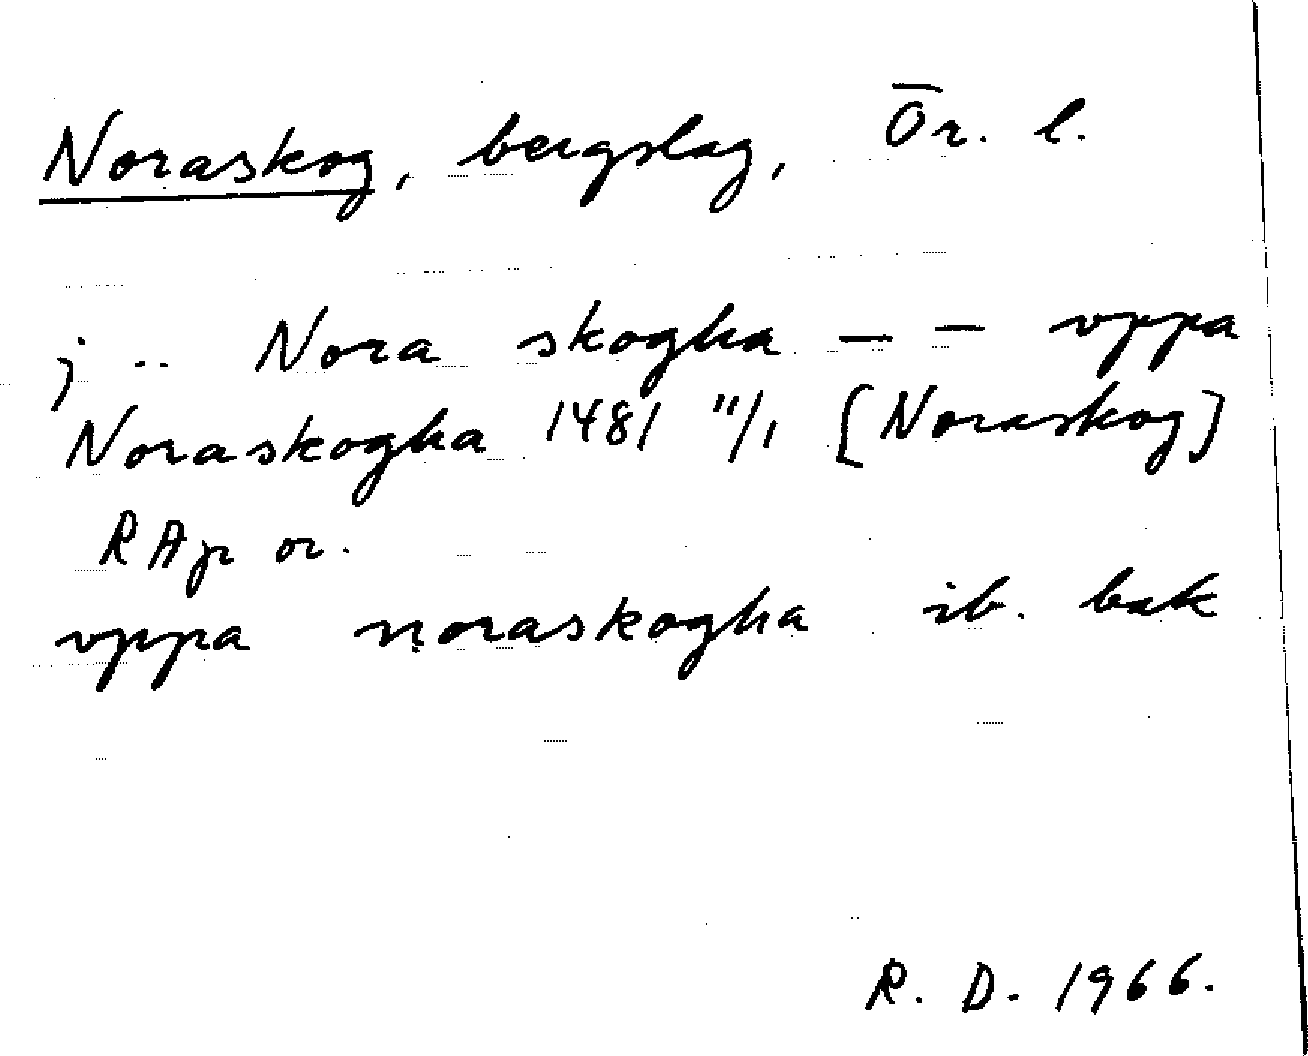 Noraskog, bergslag, Ör. l.
j .. Nora skogha — — vppa
Noraskogha 1481 11/1 [Noraskog]
RAp or.
vppa noraskogha ib. bak
R. D. 1966.